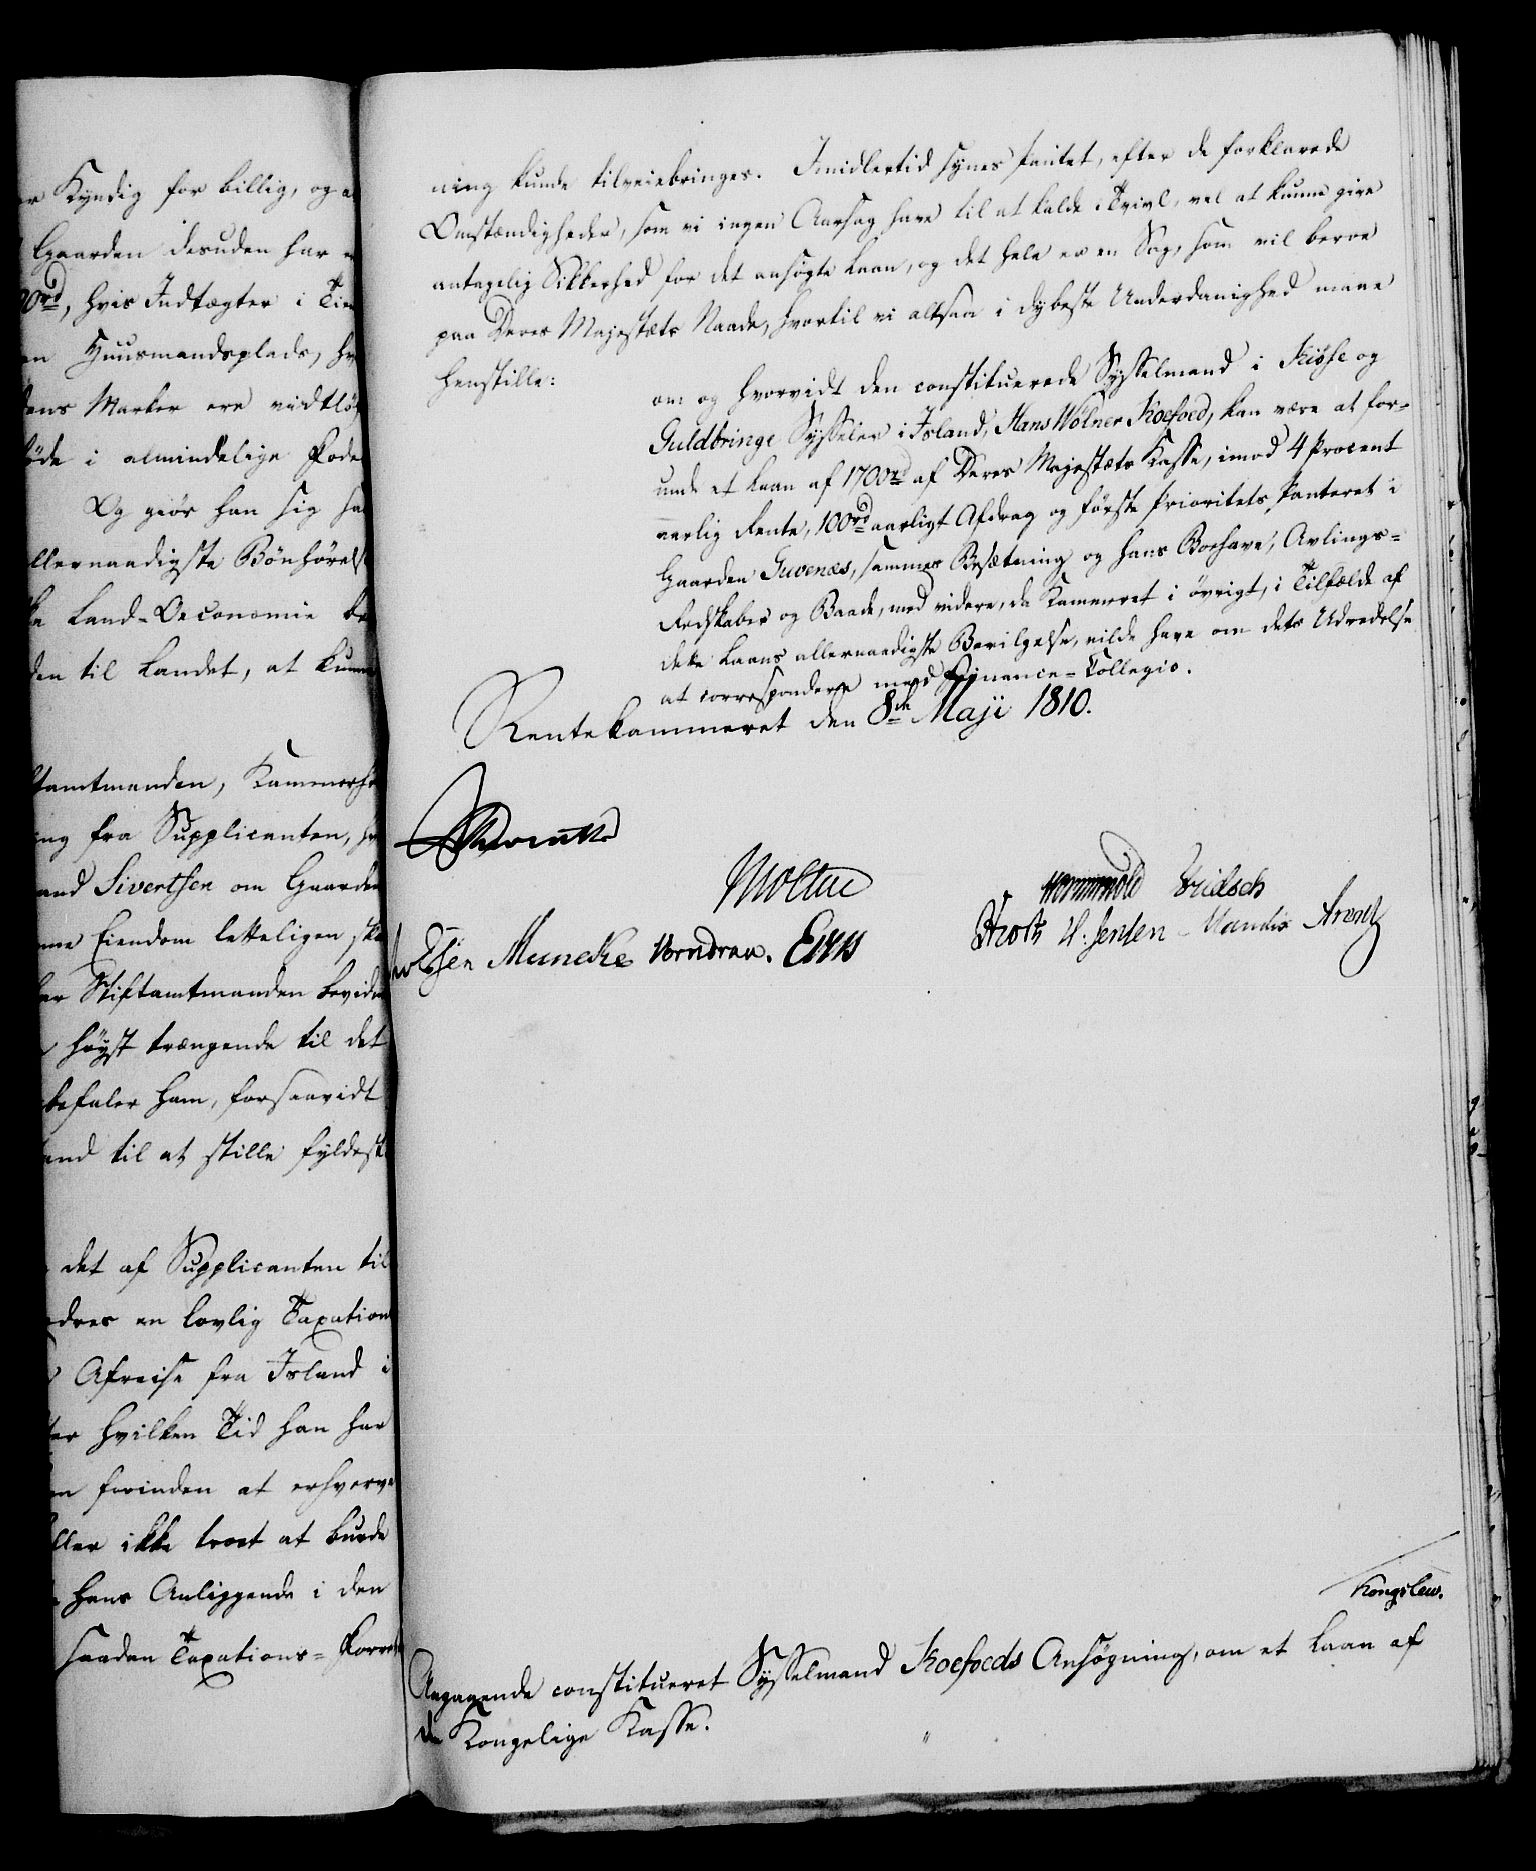 er Kyndig for billig, og a
Gaarden desuden har e
00rd, hvis Indtægter i Tien
en Huusmandsplads, hv
dens Marker ere vidtløf
øde i almindelige Fode
Og giør han sig ha
llernaadigste Bønhørels
ke Land-Oeconomie be
den til Landet, at kunne
ftamtmanden, Kammerhe
ing fra Supplicanten, hv
and Sivertsen om Gaarden
nne Eiendom letteligen ska
har Stiftamtmanden bevidne
høyst trængende til det
befaler ham, forsaavidt
and til at stille fyldest
det af Supplicanten til
edres en lovlig Taxation
Afreise fra Island i
ter hvilken Tid han har
en forinden at erhverve
ller ikke troet at burde
hans Anliggende i den
saadan Taxations-Forret
ning kunde tilveiebringes. Imidlertid synes Pantet, efter de forklarede
Omstændigheder, som vi ingen Aarsag have til at kalde i Tvivl, vel at kunne give
antagelig Sikkerhed for det ansøgte Laan, og det hele er en Sag, som vil beroe
paa Deres Majestæts Naade, hvortil vi altsaa i dybeste Underdanighed maae
henstille:
om og hvorvidt den constituerede Sysselmand i Kiøse og
Guldbringe Sysseler i Island, Hans Wølner Koefoed, kan være at for-
unde et Laan af 1700rd af Deres Majestæts Kasse, imod 4 Procent
aarlig Rente, 100rd aarligt Afdrag og første Prioritets Panteret i
Gaarden Guvenæs, sammes Besætning og hans Boehave, Avlings-
Redskaber og Baade, med videre, da Kammeret i øvrigt, i Tilfælde af
dette Laans allernaadigste Bevilgelse, vilde have om dets Udredelse
at correspondere med Finance-Collegio.
Rentekammeret den 8de Maji 1810.
Moltke
Wormskiold Fridsch
Muncke Vorndran.
H. Jensen Arentz
Kongslew.
Angagende constitueret Sysselmand Koefoeds Ansøgning, om et Laan af
de Kongelige Kasse.